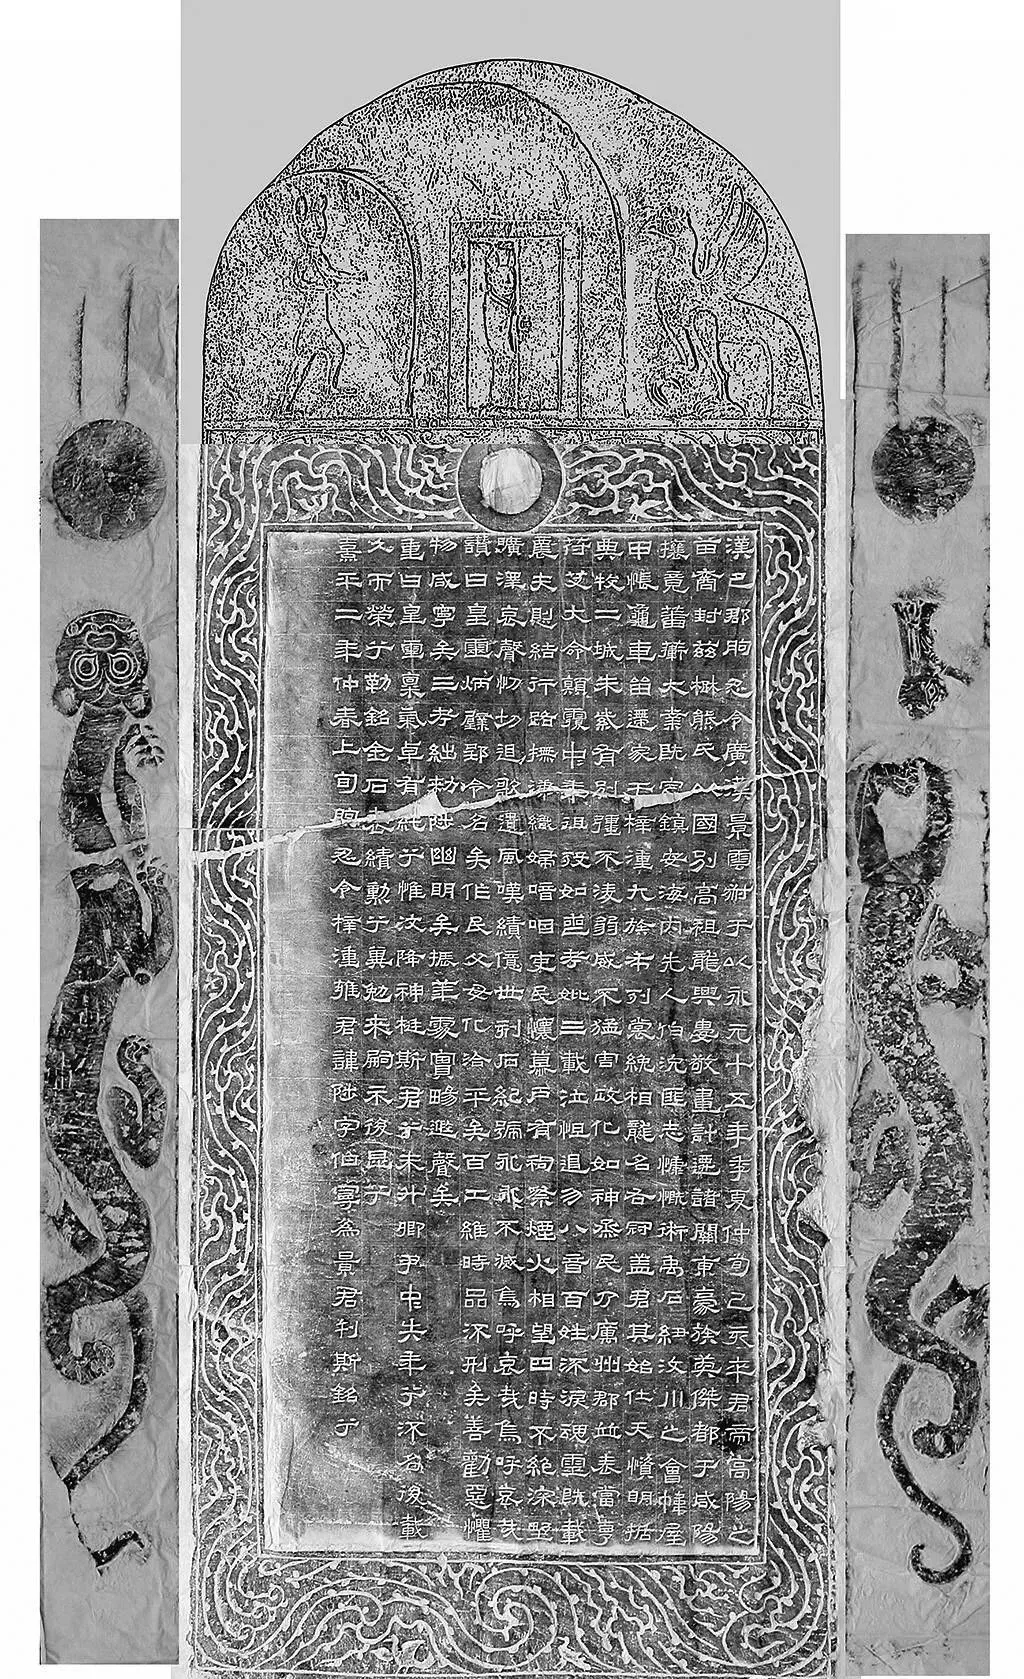 漢巴郡朐忍令廣漢景雲叔于以永元十五年季夏仲旬己亥卒君帝高陽之
苗裔封兹楚熊氏以國別高祖龍興婁敬畫計遷諸關東豪族英傑都于咸陽
攘竟蕃衛大業既定鎮安海內先人伯沇匪志慷慨術禹石紐汶川之會幃屋
甲帳龜車留遷家于梓潼九族布列裳絻相襲名右冠盖君其始仕天資明括
典牧二城朱紫有别彊不凌弱威不猛害政化如神烝民乃厲州郡並表當享
符艾大命顛覆中年徂歿如喪考妣三載泣怛遏勿八音百姓流淚魂靈既載
農夫惻結行路撫涕織婦喑咽吏民懷慕户有祠祭煙火相望四時不絕深野
曠澤哀聲忉切追歌遺風嘆績億世刻石紀號永永不滅烏呼哀哉烏呼哀哉
讚曰皇靈炳璧郢令名矣作民父母化洽平矣百工維時品流刑矣善勸惡懼
物咸寧矣三考絀敕陟幽明矣振華處實暘遐聲矣
重曰皇靈稟氣卓有純兮惟汶降神挺斯君兮未升卿尹中失年兮流名後載
久而榮兮勒銘金石表績勳兮冀勉來嗣示後昆兮
熹平二年仲春上旬朐忍令梓潼雍君諱陟字伯寧為景君刊斯銘兮